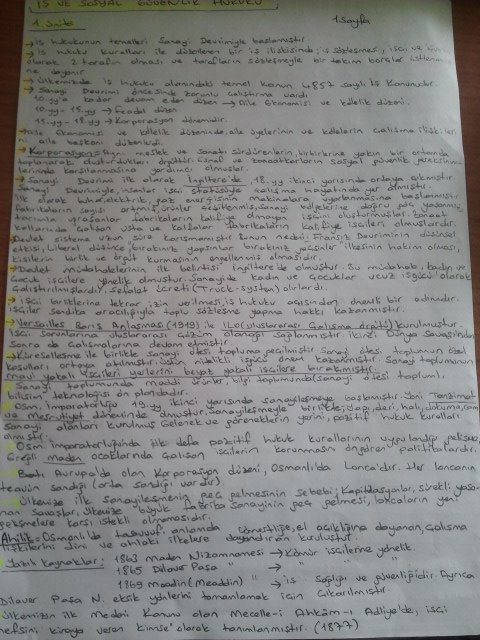 İŞ VE SOSYAL GÜVENLİK HUKUKU
1. Ünite 1.Sayfa
→ iş hukukunun temelleri Sanayi Devrimiyle başlamıştır.
→ iş hukuku kuralları ile düzenlenen bir iş ilişkisinde; iş sözleşmesi, işçi ve
olarak 2 tarafın olması ve tarafların sözleşmeyle bir takım borçlar üstlenme
ne dayanır.
→ Ülkemizde iş hukuku alanındaki temel konun 4857 sayılı İş Konunudur.
→ Sanayi Devrimi öncesinde zorunlu çalıştırma vardı
10.yy'a kadar devam eden düzen → Aile ekonomisi ve kölelik düzeni.
10.yy - 15.yy → Feodal düzen
15.yy - 18.yy → Korporasyon dönemidir.
→ Aile ekonomisi ve kölelik düzeninde, aile üyelerinin ve kölelerin çalışma ilişkiler
ni aile başkanı düzenlerdi.
→ Korporasyon = Aynı meslek ve sanatı sürdürenlerin, birbirlerine yakın bir ortamda
toplanarak oluşturdukları örgüttür. Esnaf ve zanaatkarların sosyal güvenlik gereksinme
lerinin karşılanmasına yardımcı olmuşlar.
→ Sanayi Devrimi ilk olarak İngiltere'de, 18.yy ikinci yarısında ortaya çıkmıştır.
Sanayi Devrimiyle, insanlar işçi statüsüyle çalışma hayatında yer almıştır.
İlk olarak buhar, elektrik, gaz enerjisinin makinalara uyarlanmasına başlanmıştır
fabrikaların sayısı artmış, ürünler çeşitlenmiş, sanayi bölgelerine doğru göç yaşanmış,
tarımla uğraşanlar fabrikaların kalifiye olmayan işçisini oluşturmuşlar. Zanaat
kollarında çalışan usta ve kalfalar fabrikaların kalifiye işçileri olmuşlardır.
Devlet sisteme uzun süre karışmamıştır. Bunun nedeni; Fransız Devriminin düşünsel
etkisi, Liberal düşünce, bırakınız yapsınlar bırakınız geçsinler ilkesinin hakim olması,
kişilerin birlik ve örgüt kurmasının engellenmiş olmasıdır.
→ Devlet müdahalelerinin ilk belirtisi İngiltere'de olmuştur. Bu müdahale, kadın ve
çocuk işçilere yönelik olmuştur. Sanayide kadın ve çocuklar ucuz işgücü olarak
çalıştırılmışlardır. Sefalet ücreti (Truck-system) alırlardı.
→ işçi birliklerine tekrar izin verilmesi, iş hukuku açısından önemli bir adımdır.
işçiler sendika aracılığıyla toplu sözleşme yapma hakkı kazanmıştır.
→ Versailles Barış Anlaşması (1919) ile ILO (uluslararası Çalışma örgütü) kurulmuştur.
işçi sorunlarına uluslararası çözüm olanağı sağlanmıştır. İkinci Dünya Savaşından
sonra da çalışmalarına devam etmiştir.
→ Küreselleşme ile birlikte sanayi ötesi topluma geçilmiştir. Sanayi ötesi toplumun özel
koşulları ortaya atılmıştır. Üstün nitelikli işgücü önem kazanmıştır. Sanayi toplumunun
mavi yakalı işçileri yerlerini beyaz yakalı işçilere bırakmıştır.
Sanayi toplumunda maddi ürünler, bilgi toplumunda (sanayi ötesi toplum),
bilişim teknolojisi ön plandadır.
→ Osm. imparatorluğu 19.yy. ikinci yarısında sanayileşmeye başlamıştır. Yani Tanzimat
ve Meşrutiyet döneminde olmuştur. Sanayileşmeyle birlikte; dokuma, deri, halı,
Sanayi alanları kurulmuş Gelenek ve göreneklerin yerini, pozitif hukuk kuralları
almıştır
→ Osm. imparatorluğunda ilk defa pozitif hukuk kurallarının uygulandığı
Ereğli maden ocaklarında çalışan işçilerin korunması öngören politikalardır.
→ Batı Avrupa'da olan korporasyon düzeni, Osmanlıda Lonca'dır. Her loncanın
teavün sandığı (orta sandığı vardır)
→ Ülkemize ilk sanayileşmenin geç gelmesinin sebebi; Kapitülasyonlar, sürekli yaşa-
nan savaşlar, Ülkemize büyük fabrika sanayinin geç gelmesi, loncaların yeni
gelişmelere karşı istekli olmamasıdır.
Ahilik = Osmanlıda tasavvufi anlamda cömertliğe, el açıklığına dayanan, çalışma
ilişkilerini dini ve ahlaki ilkelere dayandıran kuruluştur.
→ Yazılı kaynaklar : 1863 Maden Nizamnamesi → Kömür işçilerine yönelik.
1865 Dilaver Paşa " → " " "
1869 maadin (Meaddin) " → iş sağlığı ve güvenliğidir. Ayrıca
Dilaver Paşa N. eksik yönlerini tamamlamak için çıkarılmıştır
Ülkemizin ilk Medeni Konunu olan Mecelle-i Ahkâm-ı Adliye'de, işçi
nefsini kiraya veren kimse olarak tanımlanmıştır. (1877)